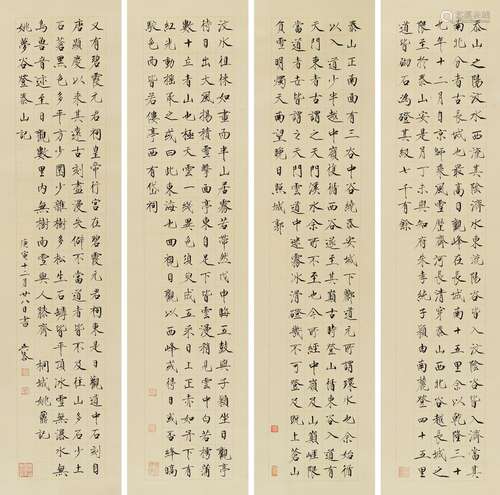 泰山之陽汶水西流其陰濟水東流陽谷皆入汶陰谷皆入濟當其
南北分者古長城也最高日觀峰在長城南十五里余以乾隆三十
九年十二月自京師乘風雪歷齊河長清穿泰山西北谷越長城之
限至於泰安是月丁未與知府朱孝純子潁由南麓登四十五里
道皆砌石為磴其級七千有餘
泰山正南面有三谷中谷繞泰安城下酈道元所謂環水也余始循
以入道少半越中嶺復循西谷遂至其巔古時登山循東谷入道有
天門東谷者古謂之天門溪水余所不至也今所經中嶺及山巔崖限
當道者世皆謂之天門雲道中迷霧冰滑磴幾不可登及既上蒼山
負雪明燭天南望晚日照城郭
汶水徂徠如畫而半山居霧若帶然戊申晦五鼓與子潁坐日觀亭
待日出大風揚積雪擊面亭東自足下皆雲漫稍見雲中白若樗蒲
數十立者山也極天雲一線異色須臾成五采日上正赤如丹下有
紅光動搖承之或曰此東海也回視日觀以西峰或得日或否絳皜
駁色而皆若僂亭西有岱祠
又有碧霞元君祠皇帝行宮在碧霞元君祠東是日觀道中石刻自
唐顯慶以來其遠古刻盡漫失僻不當道者皆不及往山多石少土
石蒼黑色多平方少圜少雜樹多松生石罅皆平頂冰雪無瀑水無
鳥獸音迹至日觀數里內無樹而雪與人膝齊 桐城姚鼐記
姚夢谷登泰山記 庚寅十二月廿八日書